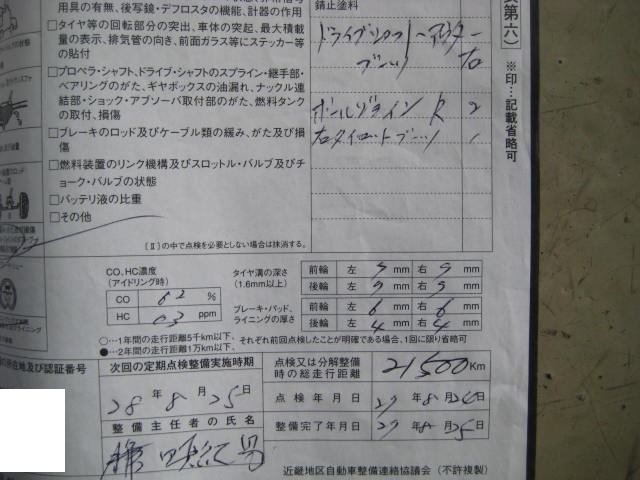 用具の有無、後写鏡・デフロスタの機能、計器の作用
□タイヤ等の回転部分の突出、車体の突起、最大積載
量の表示、排気管の向き、前面ガラス等にステッカー等
の貼付
□プロペラ・シャフト、ドライブ・シャフトのスプライン・継手部・
ベアリングのがた、ギヤボックスの油漏れ、ナックル連
結部・ショック・アブソーバ取付部のがた、燃料タンク
の取付、損傷
□ブレーキのロッド及びケーブル類の緩み、がた及び損
傷
□燃料装置のリンク機構及びスロットル・バルブ及びチ
ョーク・バルブの状態
□バッテリ液の比重
□その他
〔Ⅱ〕の中で点検を必要としない場合は抹消する。
錆止塗料
ドライブシャフトアウター
ブーツ 右
右タイロットブーツ
第六)
※印…記載省略可
CO、HC濃度
(アイドリング時)
CO %
HC ppm
タイヤ溝の深さ
(1.6mm以上)
前輪 左 5 mm 右 5 mm
後輪 左 5 mm 右 5 mm
ブレーキ・パッド、
ライニングの厚さ
前輪 左 6 mm 右 6 mm
後輪 左 4 mm 右 4 mm
○…1年間の走行距離5千km以下、
●…2年間の走行距離1万km以下、
それぞれ前回点検したことが明確である場合、1回に限り省略可
の所在地及び認証番号
次回の定期点検整備実施時期
28年8月25日
整備主任者の氏名
点検又は分解整備
時の総走行距離
21500 Km
点検年月日 27年8月24日
整備完了年月日 27年8月25日
近畿地区自動車整備連絡協議会(不許複製)